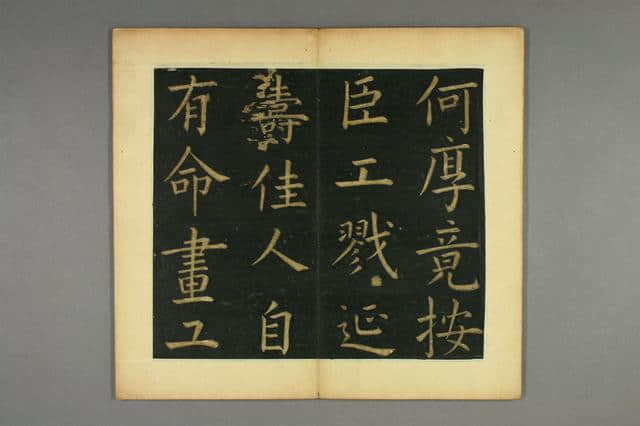 何厚竟按
臣工戮延
壽佳人自
有命畫工